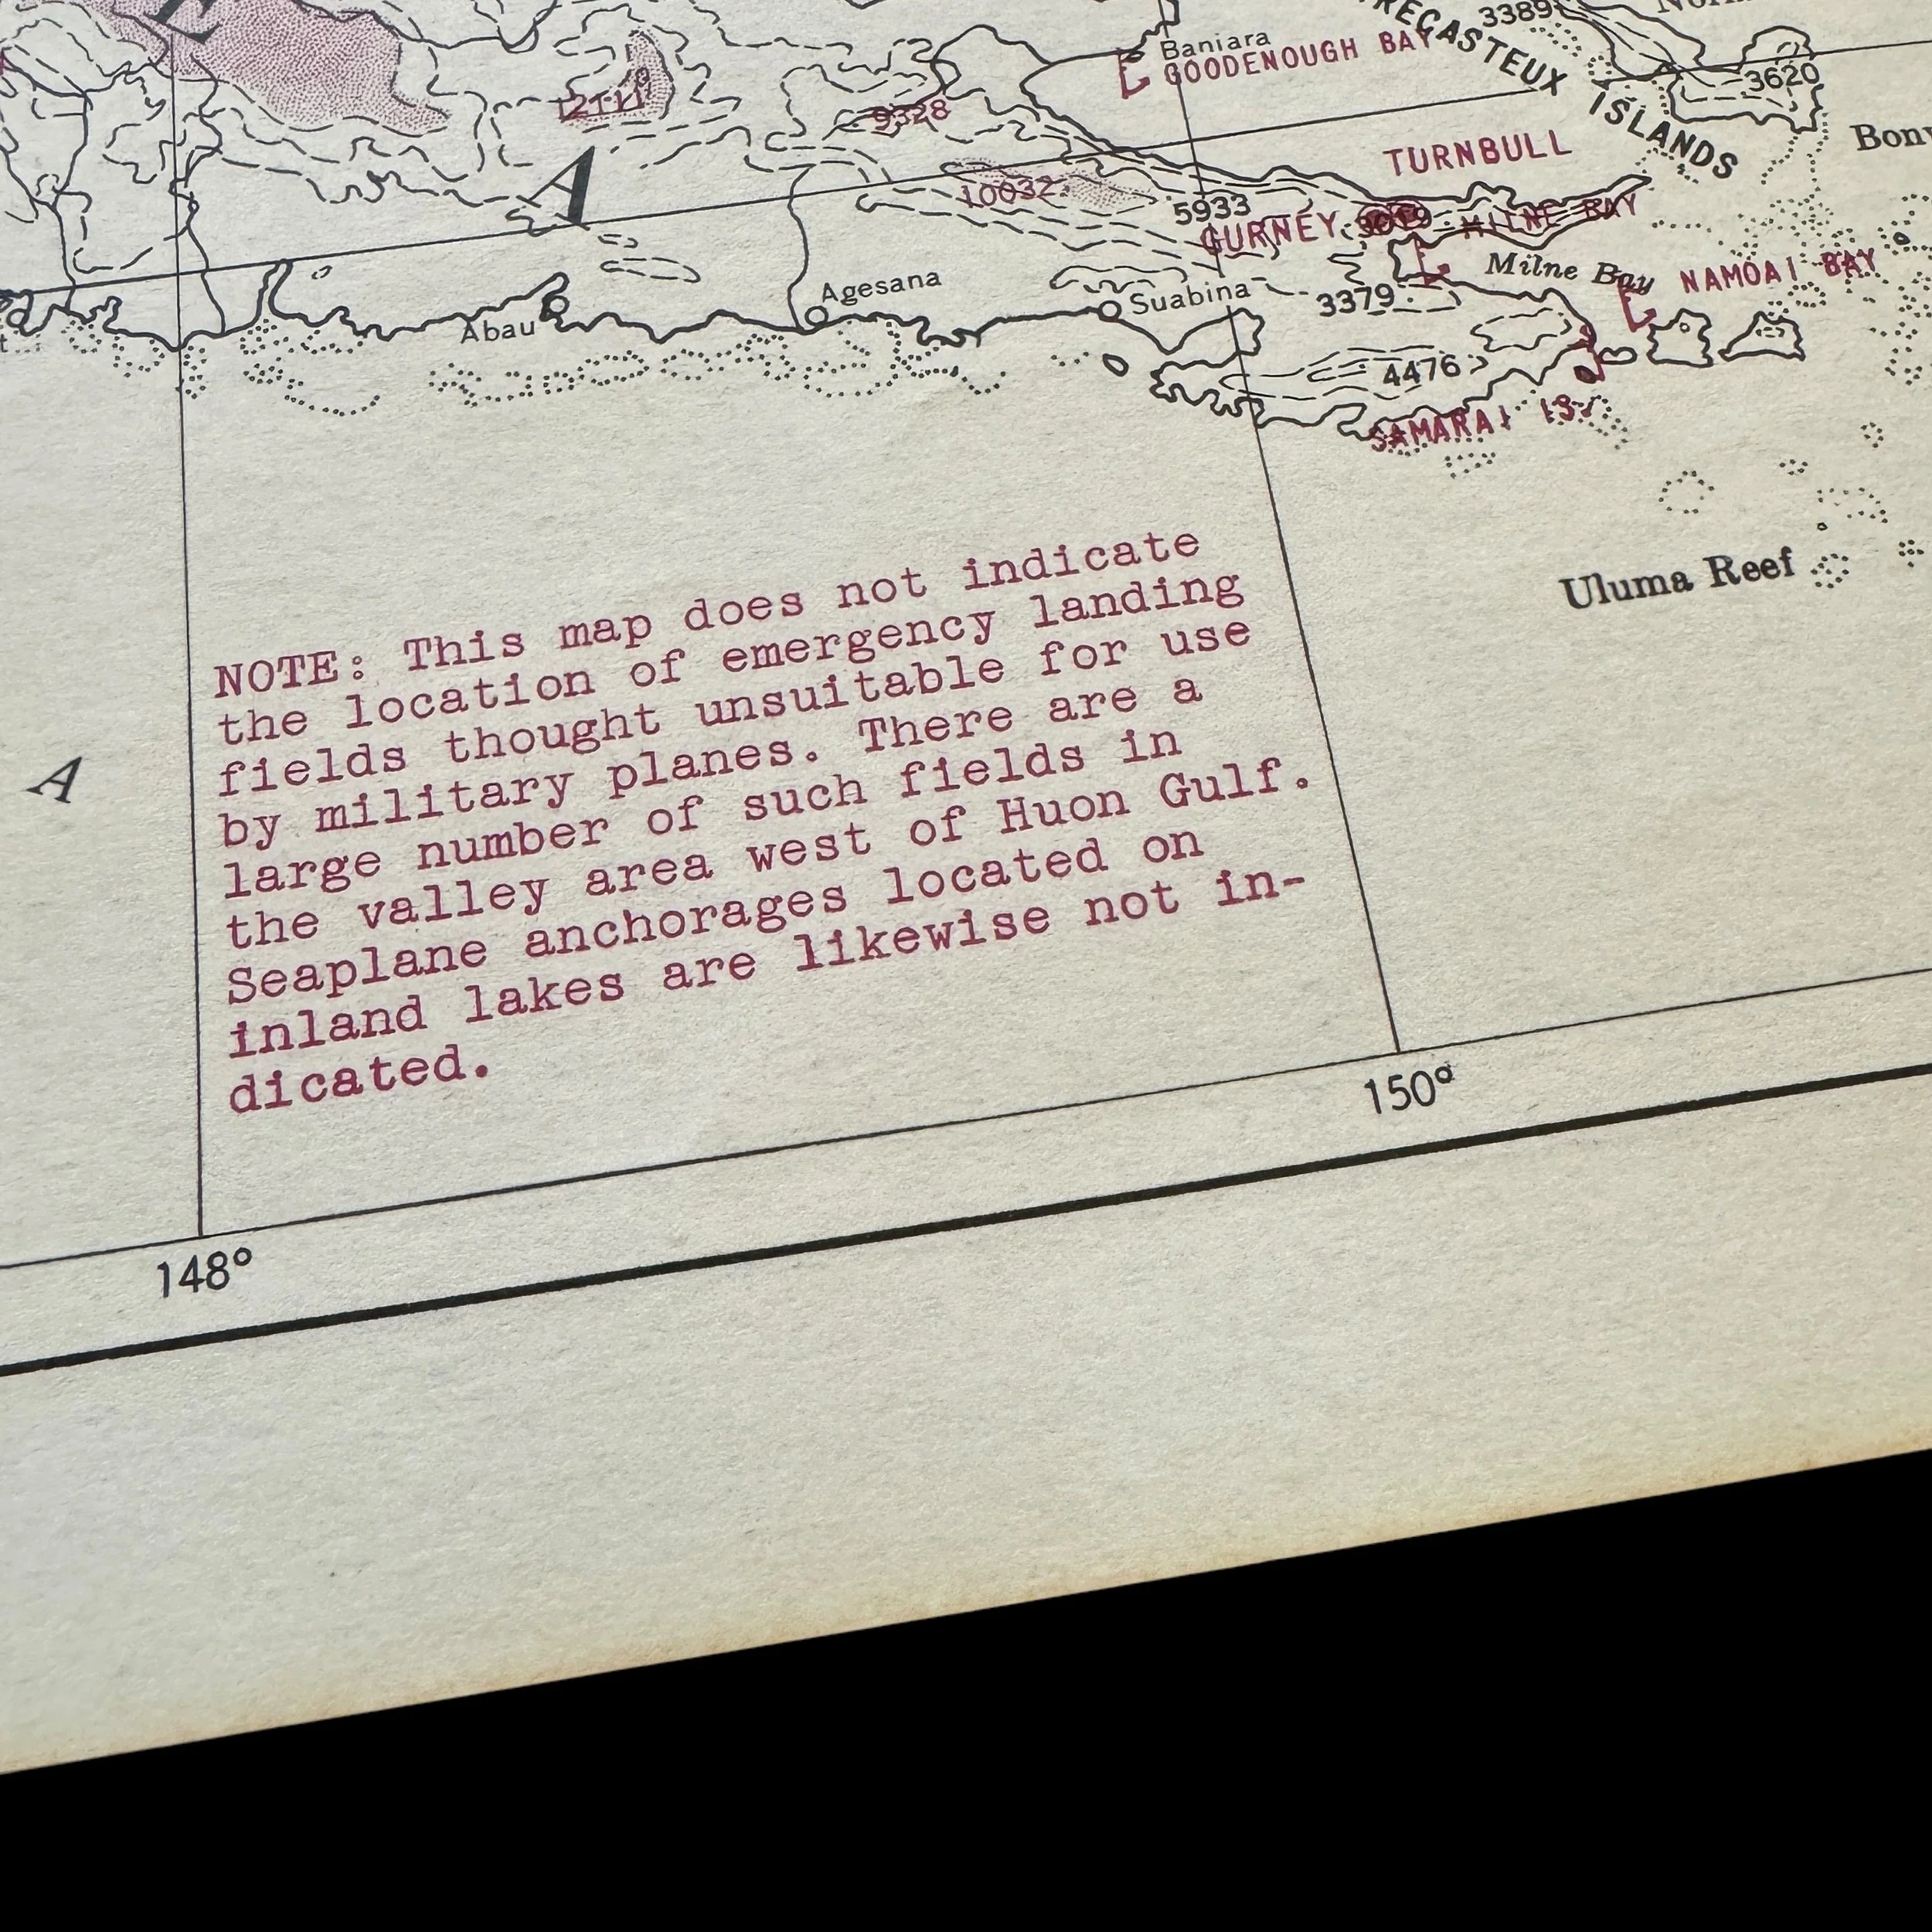 3389
3620
Baniara
GOODENOUGH BAY
ISLANDS
TURNBULL
9328
10032
5933
GURNEY
MILNE BAY
A
Milne Bay
NAMOAI BAY
Agesana
Suabina
3379
Abau
4476
SAMARAI IS.
Uluma Reef
NOTE: This map does not indicate
the location of emergency landing
fields thought unsuitable for use
by military planes. There are a
large number of such fields in
the valley area west of Huon Gulf.
Seaplane anchorages located on
inland lakes are likewise not in-
dicated.
A
150°
148°